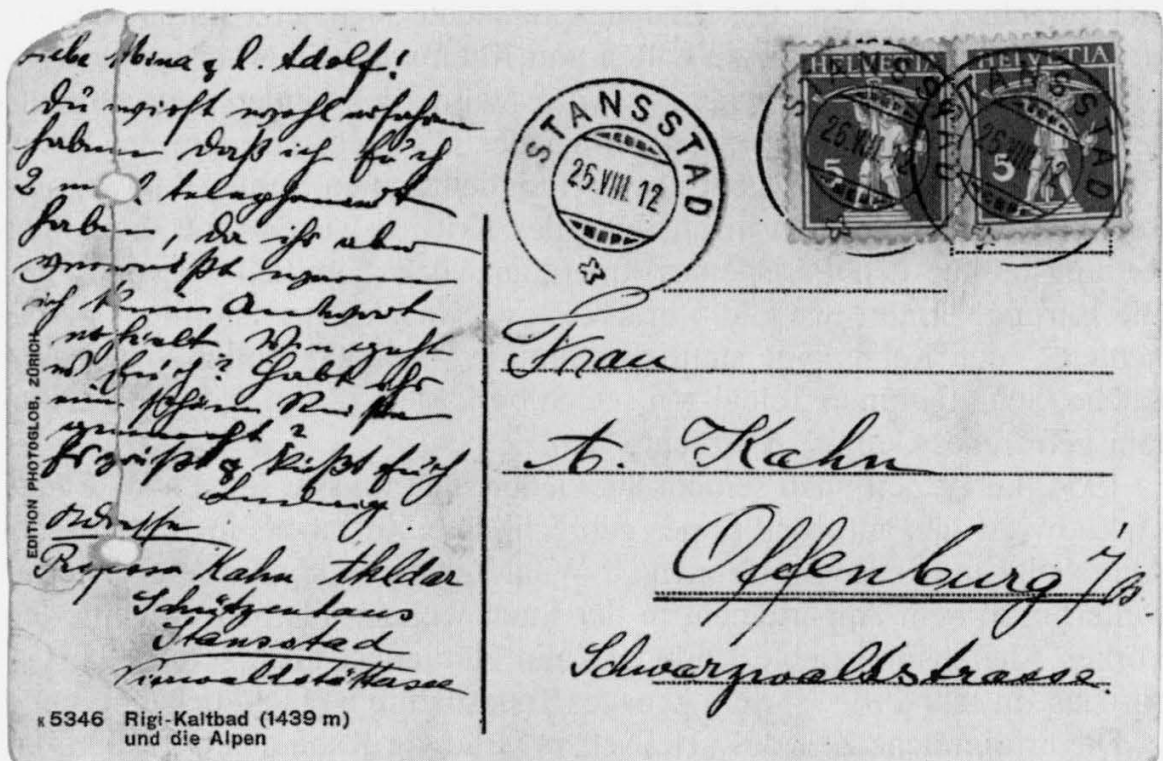 Liebe Mina & l. Adolf!
Du wirst wohl erfahren
haben daß ich Euch
2 mal telephoniert
haben, da ihr aber
verreist waren
ich kein Antwort
erhielt. Wie geht
es Euch? Habt ihr
eine schöne Reise
gemacht?
Es grüßt & küßt Euch
Ludwig
Adresse
Kahn
Schützenhaus
Stansstad
Vierwaltstättersee
EDITION PHOTOGLOB, ZÜRICH
K 5346 Rigi-Kaltbad (1439 m)
und die Alpen
STANSSTAD
26.VIII.12
HELVETIA
5
STANSSTAD
26.VIII.12
HELVETIA
5
STANSSTAD
26.VIII.12
Frau
A. Kahn
Offenburg i/B.
Schwarzwaltstrasse.